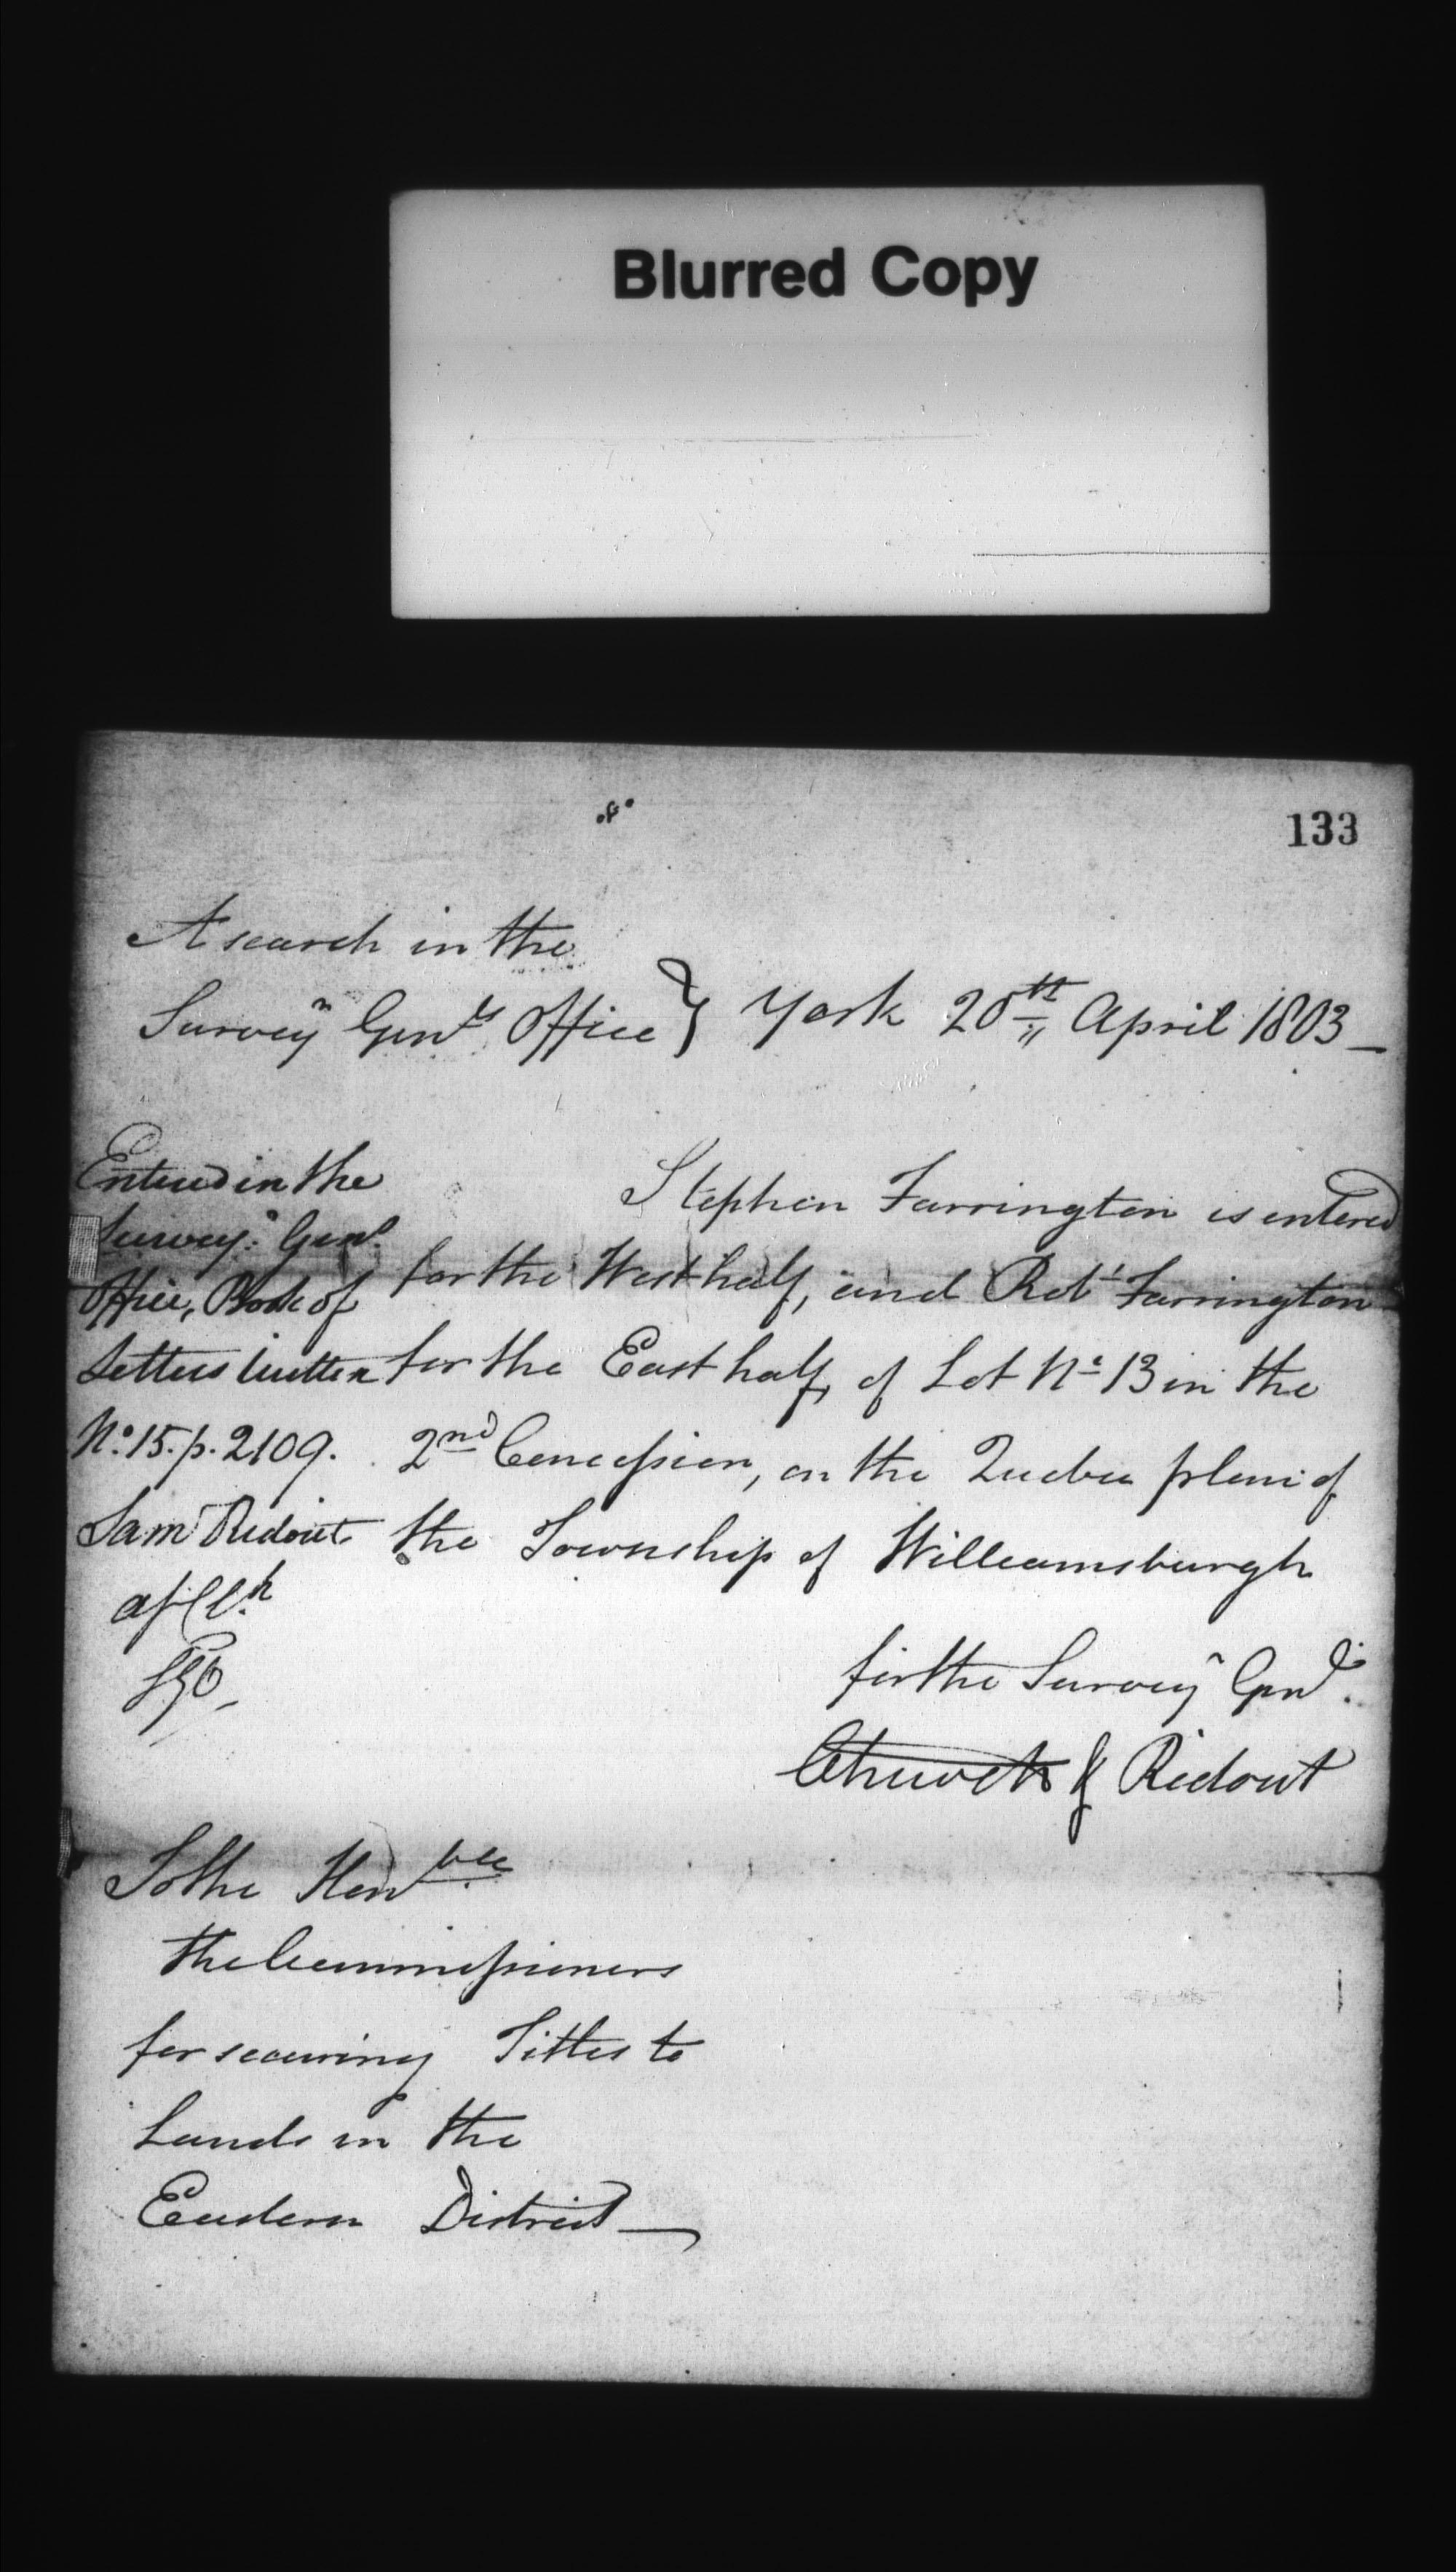 Blurred Copy
133
A search in the
Surveyr Genls Office } York 20th April 1803 —
Entered in the
Surveyr Genl
Office, Book of
Letters written
No. 15. p. 2109.
Sam Ridout
Clk
Stephen Farrington is entered
for the West half, and Robt Farrington
for the East half, of Lot No 13 in the
2nd Concession, on the Quebec plan of
the Township of Williamsburgh
for the Surveyr Genl.
Chewett & Ridout
To the Honble
the Commissioners
for securing Titles to
Lands in the
Eastern District —